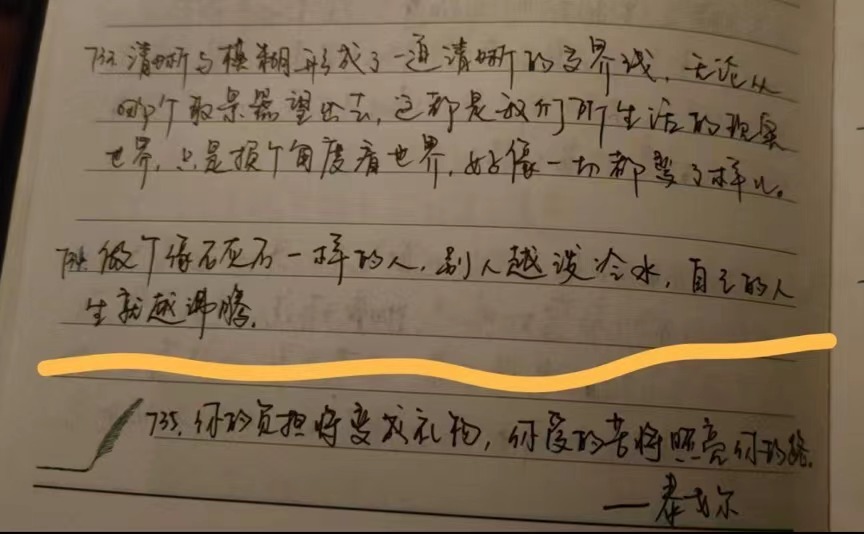 733.清晰与模糊形成了一道清晰的分界线，无论从
哪个取景器望出去，这都是我们所生活的现实
世界，只是换个角度看世界，好像一切都变了样儿。
734.做个像石灰石一样的人，别人越泼冷水，自己的人
生就越沸腾。
735.你的负担将变成礼物，你受的苦将照亮你的路。
——泰戈尔